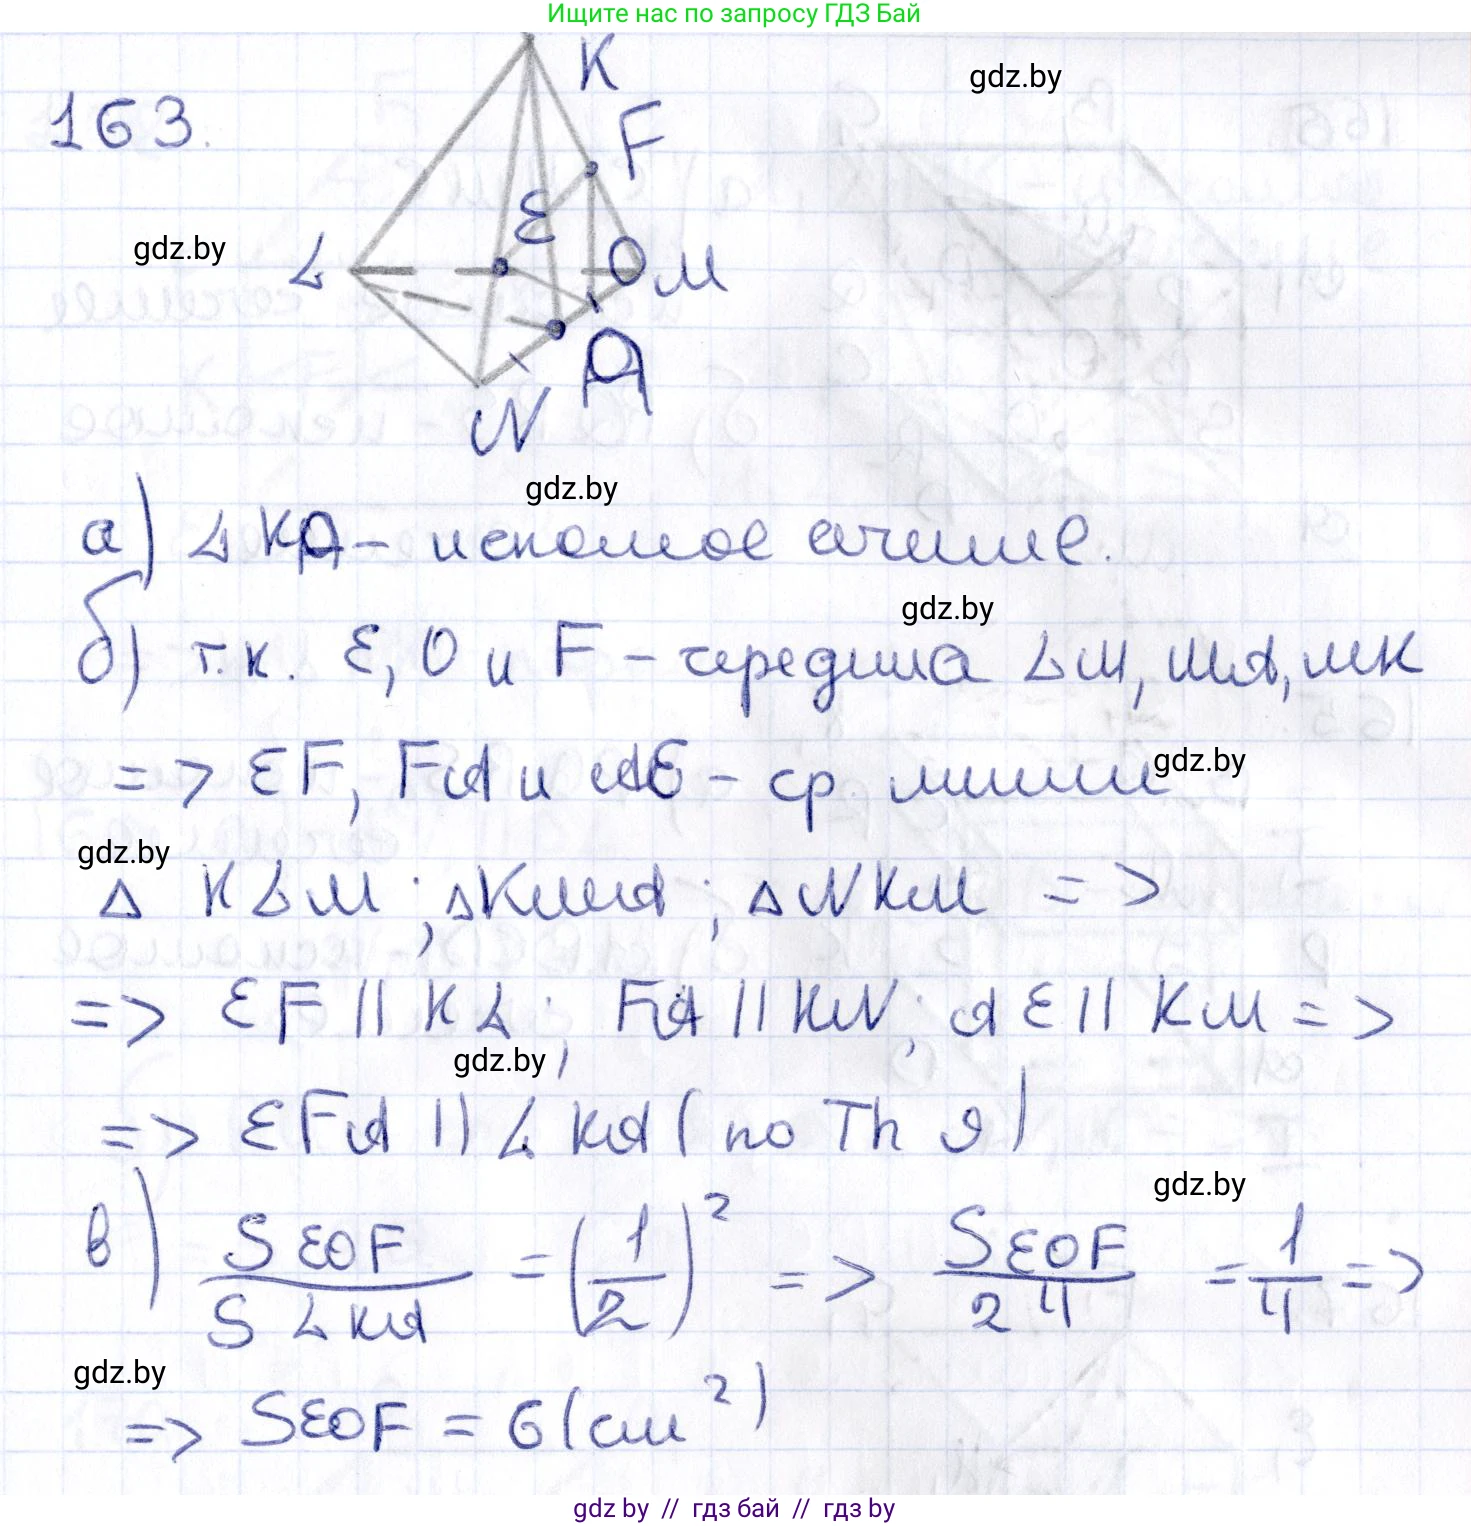 Ищите нас по запросу ГДЗ Бай
163.
K
gdz.by
F
E
gdz.by
L
O M
Д
N
gdz.by
а) LKД – искомое сечение.
gdz.by
б) т.к. E, O и F – середина LM, MA, MK
=> EF, FA и AE – ср. линии
gdz.by
gdz.by
Δ KLM; Δ KMA; Δ NKM =>
=> EF || KL; FA || KN; AE || KM =>
gdz.by
=> EFA || LKA (по Th 9)
gdz.by
в) S EOF / S LKA = (1/2)² => S EOF / 24 = 1/4 =>
gdz.by
=> S EOF = 6 (см²)
gdz.by // гдз бай // гдз by